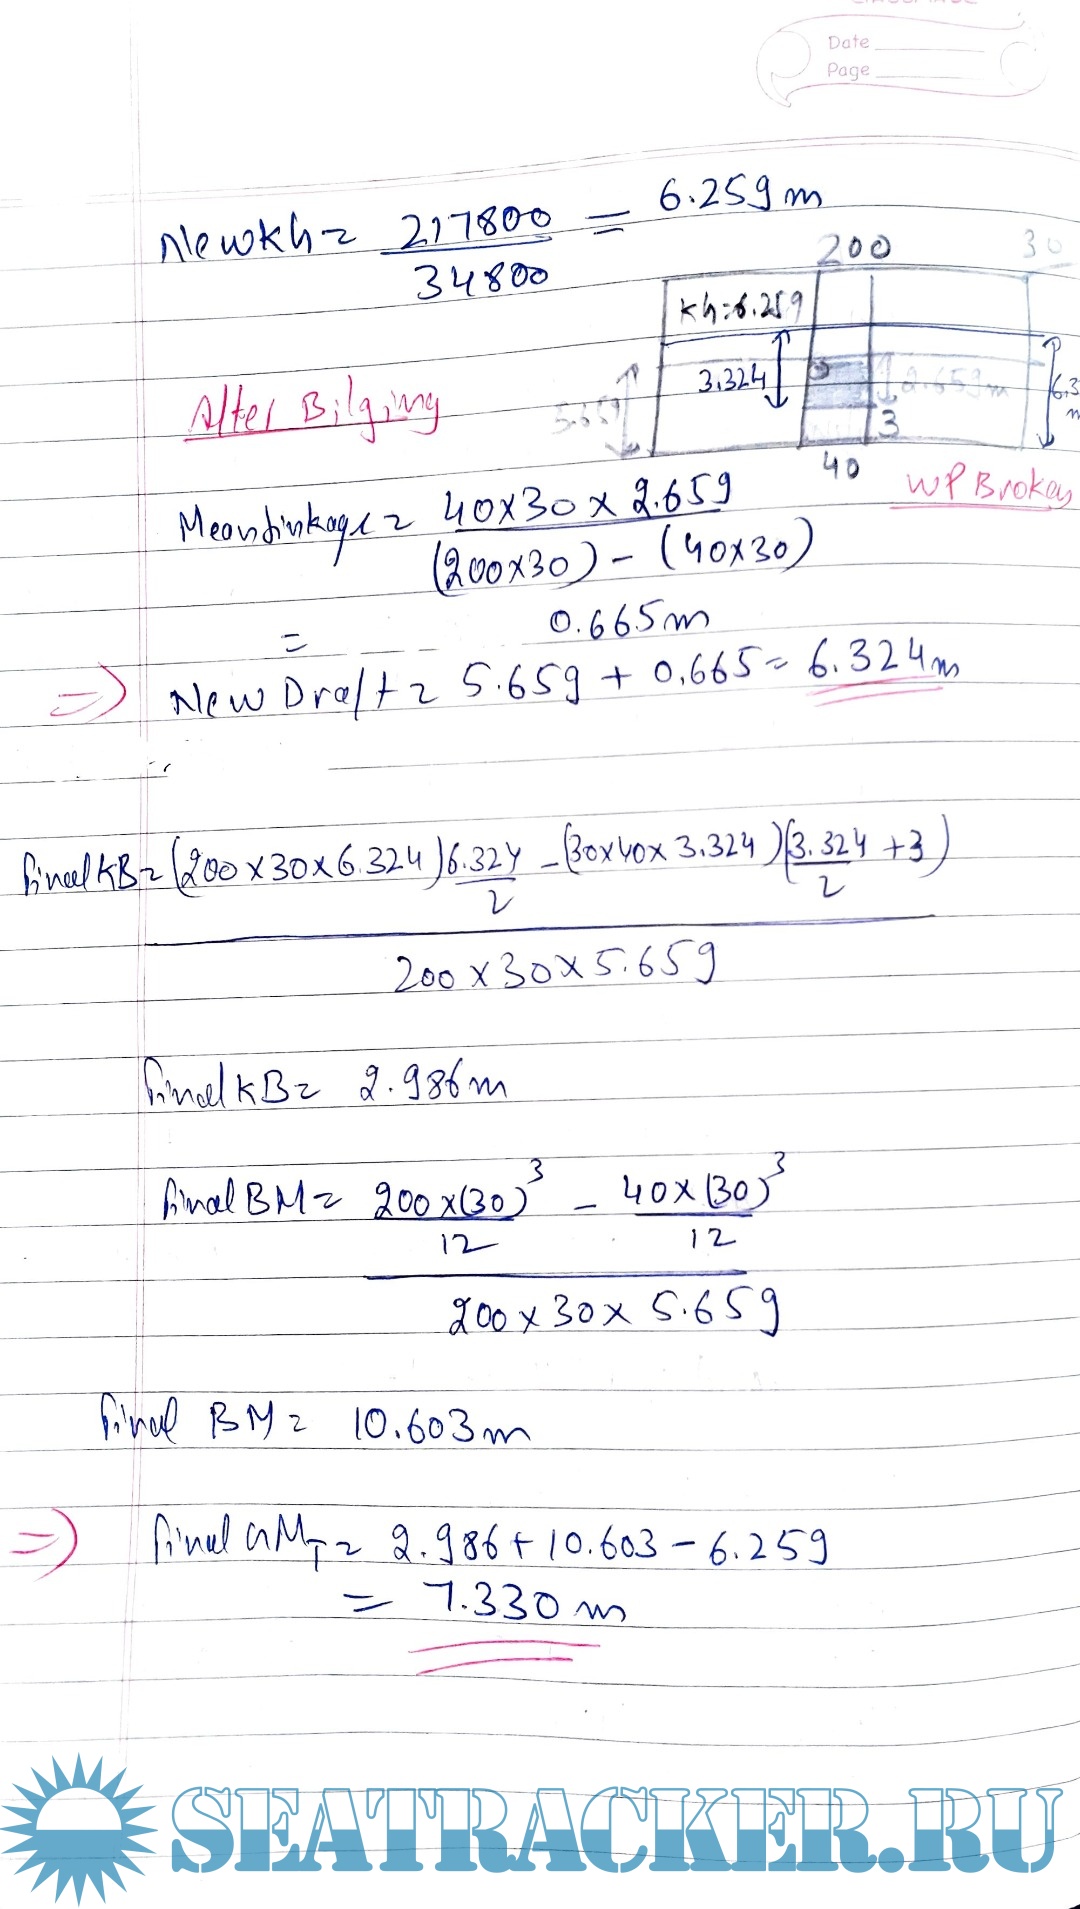 Date
Page
New KG = 217800 / 34800 = 6.259 m
200
30
KG=6.259
3.324
2.659m
5.659
3
40
WP Broken
After Bilging
Mean Sinkage = 40x30 x 2.659 / (200x30) - (40x30)
= 0.665m
=> New Draft = 5.659 + 0.665 = 6.324m
Final KB = (200 x 30 x 6.324) 6.324/2 - (30x40x 3.324)(3.324/2 + 3)
200 x 30 x 5.659
Final KB = 2.986m
Final BM = 200 x (30)³/12 - 40 x (30)³/12
200 x 30 x 5.659
Final BM = 10.603m
=> Final GM_T = 2.986 + 10.603 - 6.259
= 7.330 m
SEATRACKER.RU